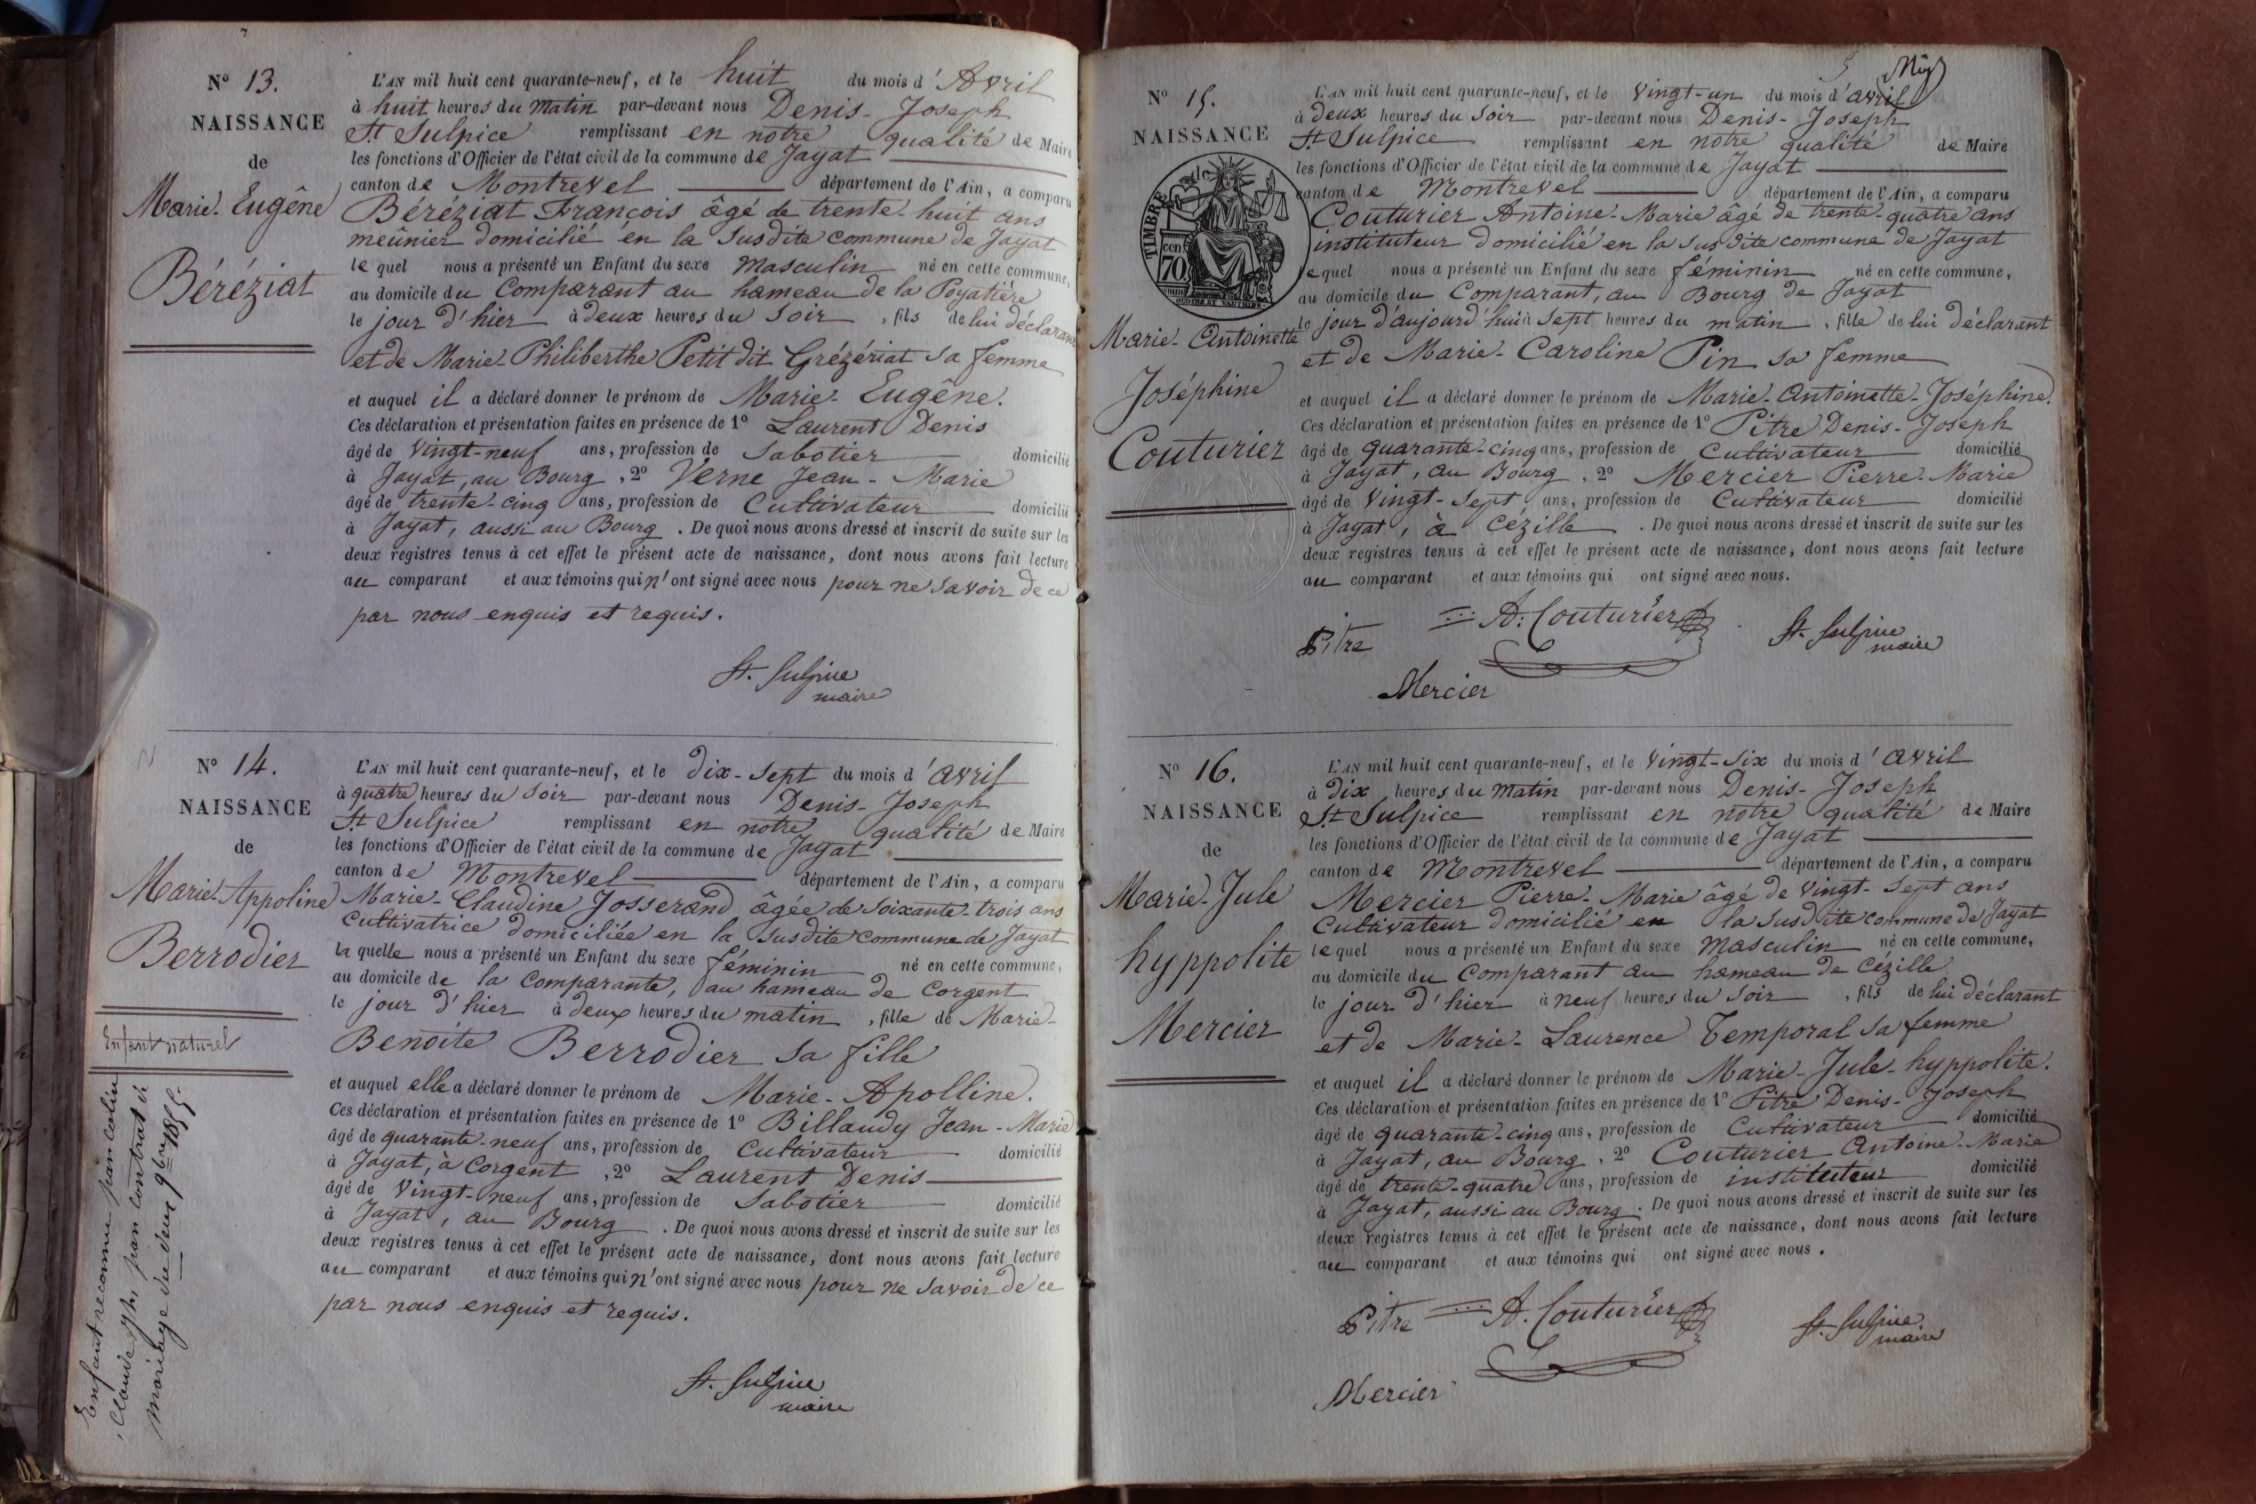 N° 13.
NAISSANCE
de
Marie-Eugêne
Béréziat
L'AN mil huit cent quarante-neuf, et le huit du mois d'Avril
à huit heures du matin par-devant nous Denis-Joseph
St Sulpice remplissant en notre qualité de Maire
les fonctions d'Officier de l'état civil de la commune de Jayat
canton de Montrevel département de l'Ain, a comparu
Béréziat François âgé de trente-huit ans
meûnier domicilié en la susdite commune de Jayat
lequel nous a présenté un Enfant du sexe masculin né en cette commune,
au domicile du Comparant au hameau de la Poyatière
le jour d'hier à deux heures du soir, fils de lui déclarant
et de Marie-Philiberthe Petit dit Grézériat sa femme
et auquel il a déclaré donner le prénom de Marie-Eugêne.
Ces déclaration et présentation faites en présence de 1° Laurent Denis
âgé de vingt-neuf ans, profession de sabotier domicilié
à Jayat, au Bourg, 2° Verne Jean-Marie
âgé de trente-cinq ans, profession de Cultivateur domicilié
à Jayat, aussi au Bourg. De quoi nous avons dressé et inscrit de suite sur les
deux registres tenus à cet effet le présent acte de naissance, dont nous avons fait lecture
au comparant et aux témoins qui n'ont signé avec nous pour ne savoir de ce
par nous enquis et requis.
St. Sulpice
maire
N° 14.
NAISSANCE
de
Marie-Appoline
Berrodier
Enfant naturel
Enfant reconnu par colin
Claude, par contrat de
mariage du deux 9bre 1855.
L'AN mil huit cent quarante-neuf, et le dix-sept du mois d'avril
à quatre heures du soir par-devant nous Denis-Joseph
St Sulpice remplissant en notre qualité de Maire
les fonctions d'Officier de l'état civil de la commune de Jayat
canton de Montrevel département de l'Ain, a comparu
Marie-Claudine Josserand âgée de soixante-trois ans
Cultivatrice domiciliée en la susdite commune de Jayat
laquelle nous a présenté un Enfant du sexe féminin né en cette commune,
au domicile de la Comparante, au hameau de Corgent
le jour d'hier à deux heures du matin, fille de Marie-
Benoite Berrodier sa fille
et auquel elle a déclaré donner le prénom de Marie-Apolline.
Ces déclaration et présentation faites en présence de 1° Billaudy Jean-Marie
âgé de quarante-neuf ans, profession de cultivateur domicilié
à Jayat, à Corgent, 2° Laurent Denis
âgé de vingt-neuf ans, profession de sabotier domicilié
à Jayat, au Bourg. De quoi nous avons dressé et inscrit de suite sur les
deux registres tenus à cet effet le présent acte de naissance, dont nous avons fait lecture
au comparant et aux témoins qui n'ont signé avec nous pour ne savoir de ce
par nous enquis et requis.
St. Sulpice
maire
N° 15.
NAISSANCE
TIMBRE
70
Marie-Antoinette
Joséphine
Couturier
L'AN mil huit cent quarante-neuf, et le vingt-un du mois d'avril
à deux heures du soir par-devant nous Denis-Joseph
St Sulpice remplissant en notre qualité de Maire
les fonctions d'Officier de l'état civil de la commune de Jayat
canton de Montrevel département de l'Ain, a comparu
Couturier Antoine-Marie âgé de trente-quatre ans
instituteur domicilié en la susdite commune de Jayat
lequel nous a présenté un Enfant du sexe féminin né en cette commune,
au domicile du Comparant, au Bourg de Jayat
le jour d'aujourd'hui à sept heures du matin, fille de lui déclarant
et de Marie-Caroline Pin sa femme
et auquel il a déclaré donner le prénom de Marie-Antoinette-Joséphine.
Ces déclaration et présentation faites en présence de 1° Pitre Denis-Joseph
âgé de quarante-cinq ans, profession de Cultivateur domicilié
à Jayat, au Bourg, 2° Mercier Pierre-Marie
âgé de vingt-sept ans, profession de Cultivateur domicilié
à Jayat, à Cézille. De quoi nous avons dressé et inscrit de suite sur les
deux registres tenus à cet effet le présent acte de naissance, dont nous avons fait lecture
au comparant et aux témoins qui ont signé avec nous.
Pitre A. Couturier St. Sulpice
maire
Mercier
N° 16.
NAISSANCE
de
Marie-Jule
hyppolite
Mercier
L'AN mil huit cent quarante-neuf, et le vingt-six du mois d'avril
à dix heures du matin par-devant nous Denis-Joseph
St Sulpice remplissant en notre qualité de Maire
les fonctions d'Officier de l'état civil de la commune de Jayat
canton de Montrevel département de l'Ain, a comparu
Mercier Pierre-Marie âgé de vingt-sept ans
Cultivateur domicilié en la susdite commune de Jayat
lequel nous a présenté un Enfant du sexe masculin né en cette commune,
au domicile du Comparant au hameau de Cézille
le jour d'hier à neuf heures du soir, fils de lui déclarant
et de Marie-Laurence Temporal sa femme
et auquel il a déclaré donner le prénom de Marie-Jule-hyppolite.
Ces déclaration et présentation faites en présence de 1° Pitre Denis-Joseph
âgé de quarante-cinq ans, profession de Cultivateur domicilié
à Jayat, au Bourg, 2° Couturier Antoine-Marie
âgé de trente-quatre ans, profession de instituteur domicilié
à Jayat, aussi au Bourg. De quoi nous avons dressé et inscrit de suite sur les
deux registres tenus à cet effet le présent acte de naissance, dont nous avons fait lecture
au comparant et aux témoins qui ont signé avec nous.
Pitre A. Couturier St. Sulpice
maire
Mercier